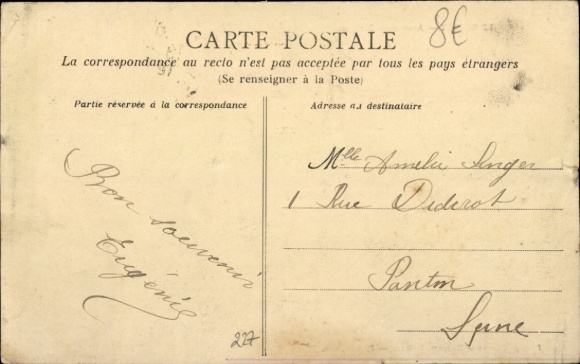 CARTE POSTALE
8€
La correspondance au recto n'est pas acceptée par tous les pays étrangers
(Se renseigner à la Poste)
Partie réservée à la correspondance
Adresse au destinataire
Bon souvenir
Eugénie
227
Mlle Amélie Singer
1 Rue Diderot
Pantin
Seine